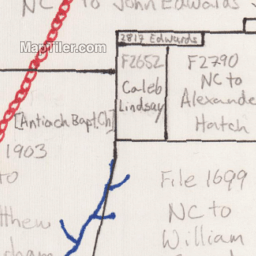 NC to John Edwards
MapTiler.com
2817 Edwards
F2652
Caleb
Lindsay
F2790
NC to
Alexande
Hatch
[Antioch Bapt. Ch]
1903
to
tthew
rham
File 1699
NC to
William